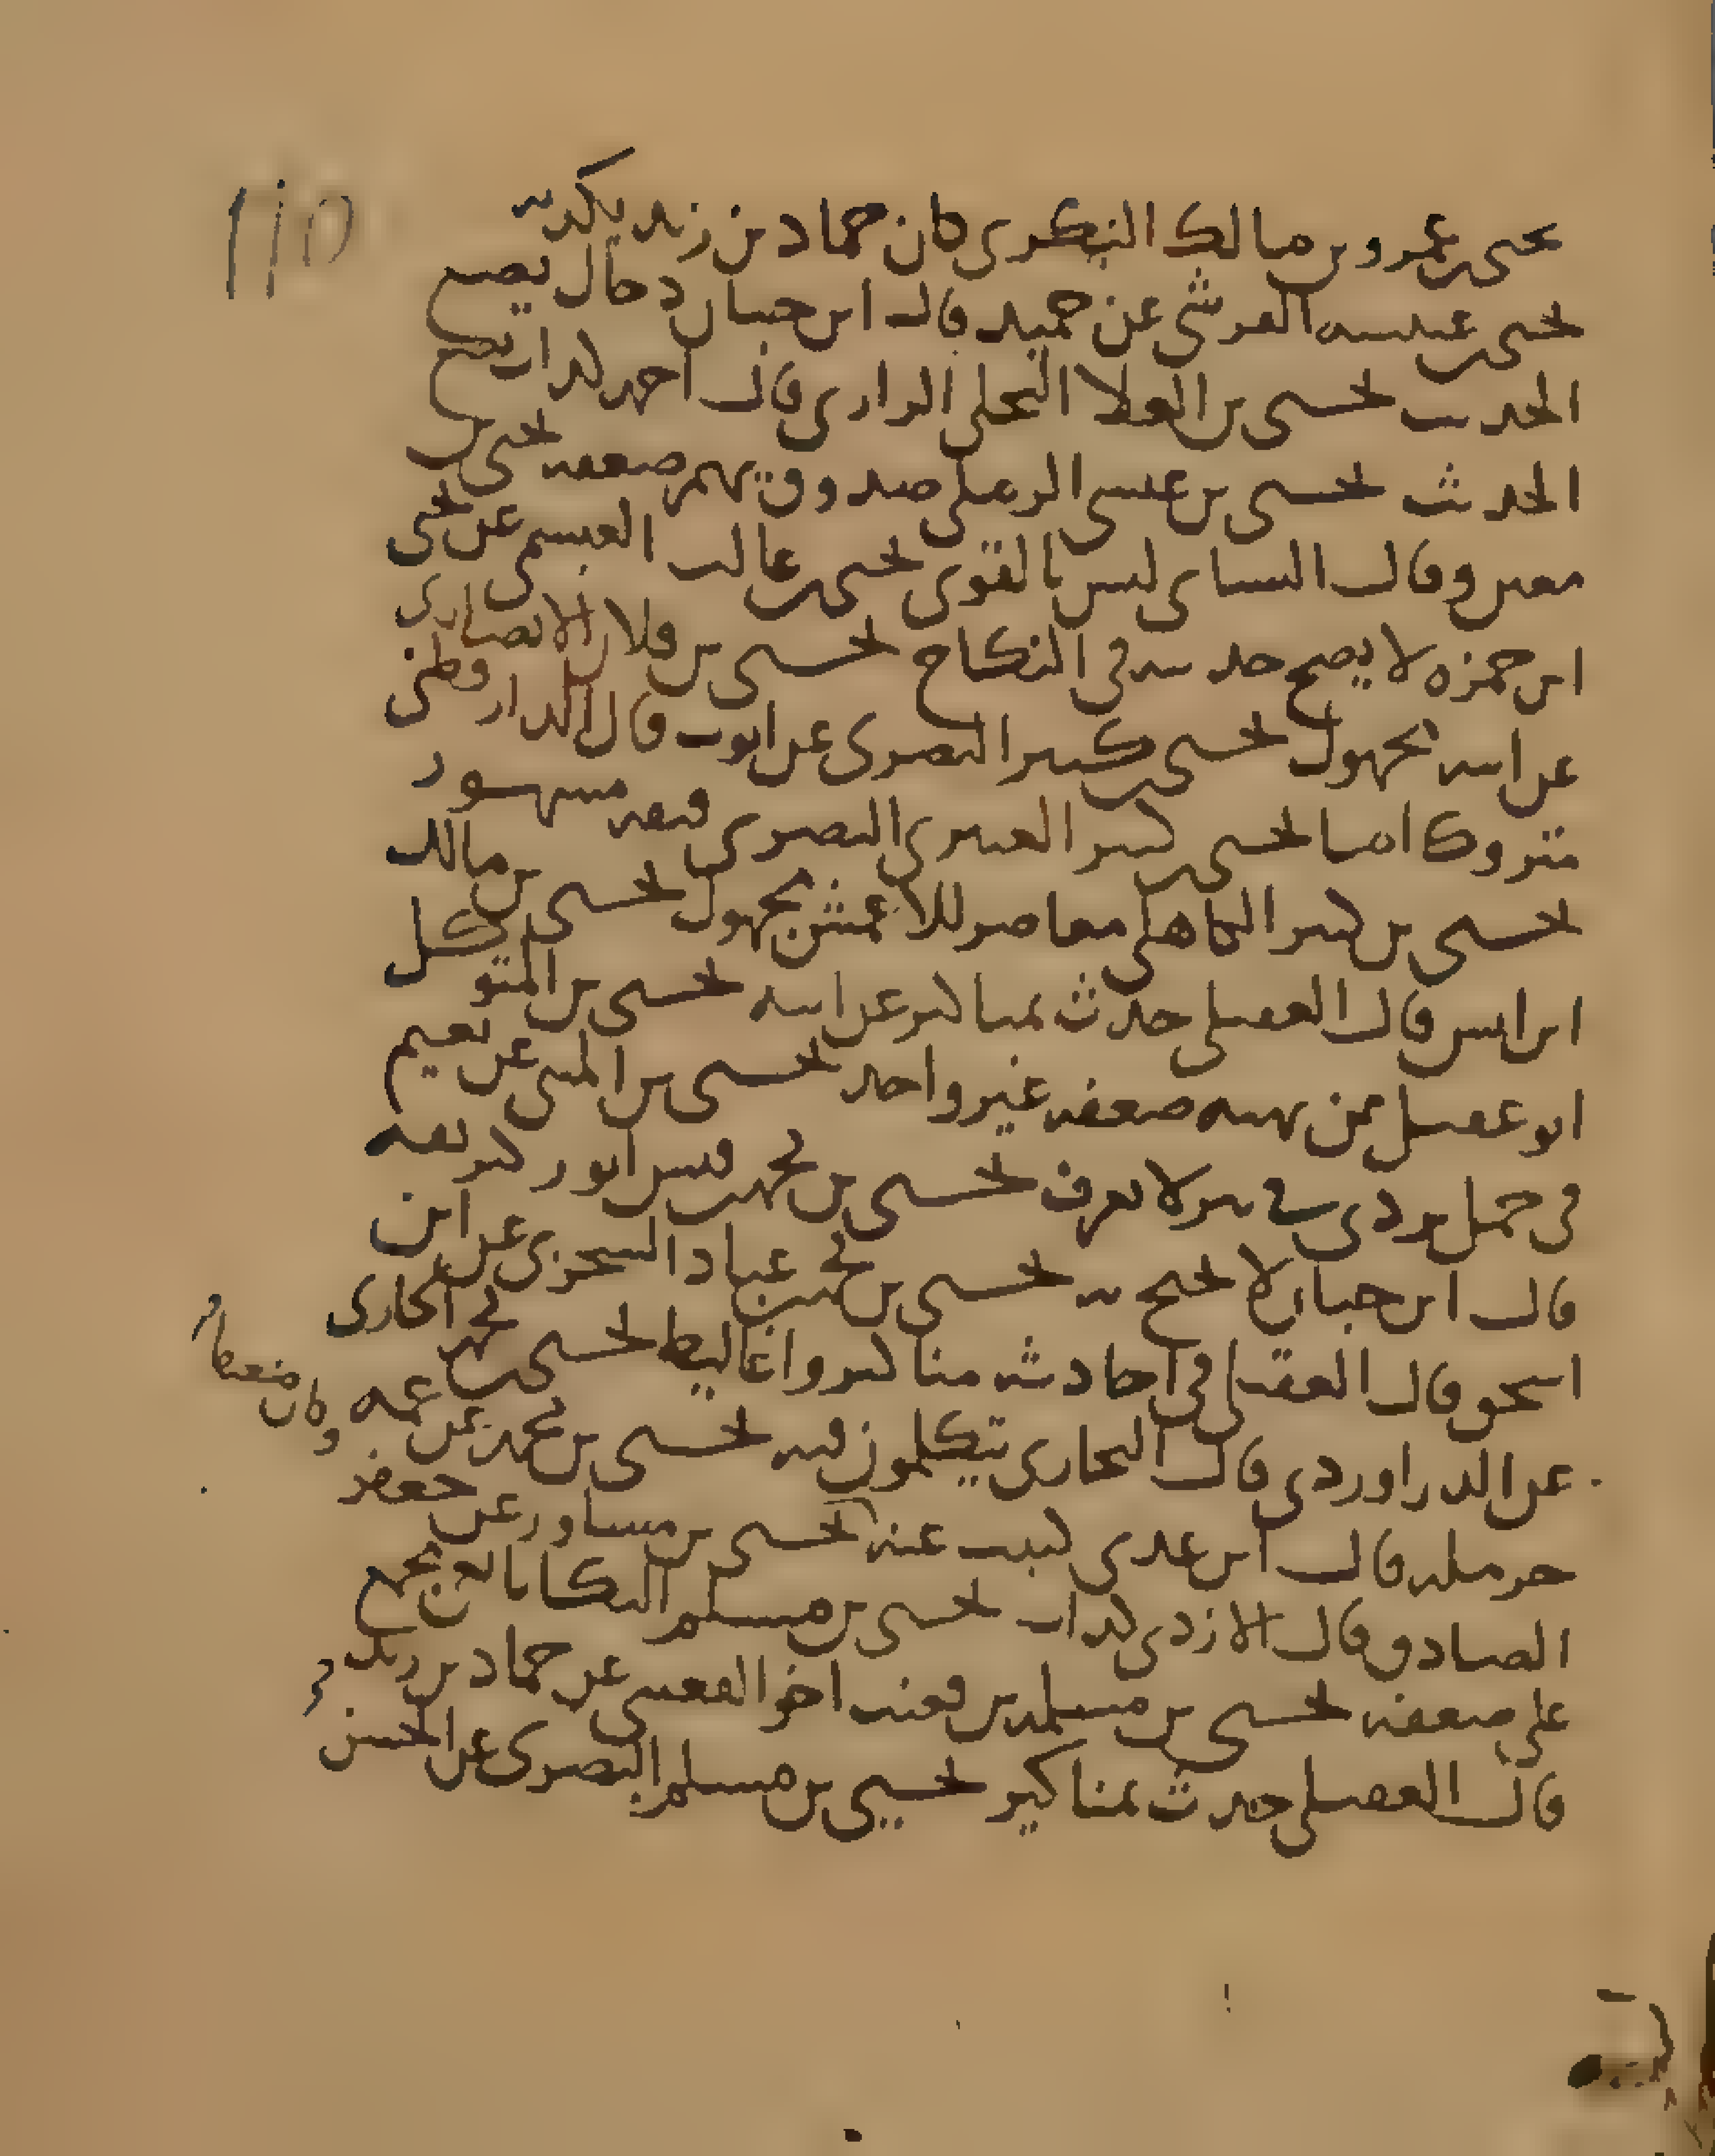 ١١٥
يحيى بن عمرو بن مالك النكرى كان حماد بن زيد يكذبه
يحيى بن عنبسه القرشى عن حميد قال ابن حبان دجال يضع
الحديث يحيى بن العلا البجلى الرازى قال احمد كذاب يضع
الحديث يحيى بن عيسى الرملى صدوق يهم ضعفه يحيى بن
معين وقال النساى ليس بالقوى يحيى بن غالب العبسمى عن يحيى
ابن حمزه لا يصح حديثه فى النكاح يحيى بن فلان الانصارى
عن ابيه مجهول يحيى بن كثير البصرى عن ايوب قال الدارقطنى
متروك اما يحيى بن كثير العنبرى البصرى فثقه مشهور
يحيى بن كثير الكاهلى معاصر للاعمش مجهول يحيى بن مالك
ابن انس قال العقيلى حدث بمناكير عن ابيه يحيى بن المتوكل
ابو عقيل عن بهيه ضعفه غير واحد يحيى بن المثنى عن نعيم
فى حمل لا يعرف يحيى بن محمد بن قيس ابو زكير ثقه
قال ابن حبان لا يحتج به يحيى بن محمد بن عباد السجزى عن ابن
اسحق قال العقيلى فى احاديثه مناكير واغاليط يحيى بن محمد الجارى
عن الدراوردى قال البخارى يتكلمون فيه يحيى بن محمد عن عمه
وكان ضعيفا
حرمله قال ابن عدى كتبت عنه يحيى بن مساور عن جعفر
الصادق قال الازدى كذاب يحيى بن مسلم البكا تابعى مجمع
على ضعفه يحيى بن مسلمه بن قعنب اخو القعنبى عن حماد بن زيد
قال العقيلى حدث بمناكير يحيى بن مسلم البصرى عن الحسن